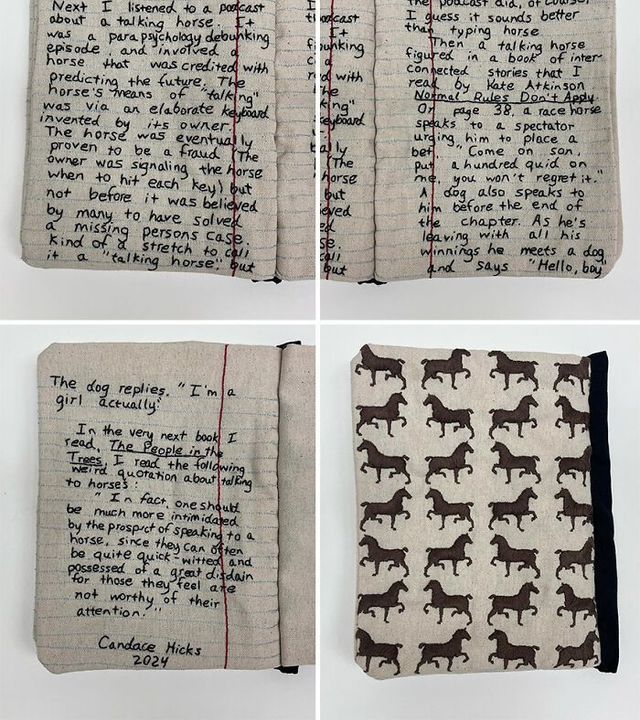 Next I listened to a podcast
about a talking horse. It
was a parapsychology debunking
episode, and involved a
horse that was credited with
predicting the future. The
horse's means of "talking"
was via an elaborate keyboard
invented by its owner.
The horse was eventually
proven to be a fraud (The
owner was signaling the horse
when to hit each key) but
not before it was believed
by many to have solved
a missing persons case.
kind of a stretch to call
it a "talking horse," but
podcast
It
with
The
king"
eyboard
ally
The
horse
but
ved
se.
call
but
the podcast did, of course.
I guess it sounds better
than typing horse
Then a talking horse
figured in a book of inter-
connected stories that I
read by Kate Atkinson
Normal Rules Don't Apply
On page 38, a race horse
speaks to a spectator
urging him to place a
bet "Come on son,
put a hundred quid on
me, you won't regret it."
A dog also speaks to
him before the end of
the chapter. As he's
leaving with all his
winnings he meets a dog
and says "Hello, boy"
The dog replies. "I'm a
girl actually."
In the very next book I
read, The People in the
Trees I read the following
weird quotation about talking
to horses:
"In fact one should
be much more intimidated
by the prospect of speaking to a
horse, since they can often
be quite quick-witted and
possessed of a great disdain
for those they feel are
not worthy of their
attention."
Candace Hicks
2024